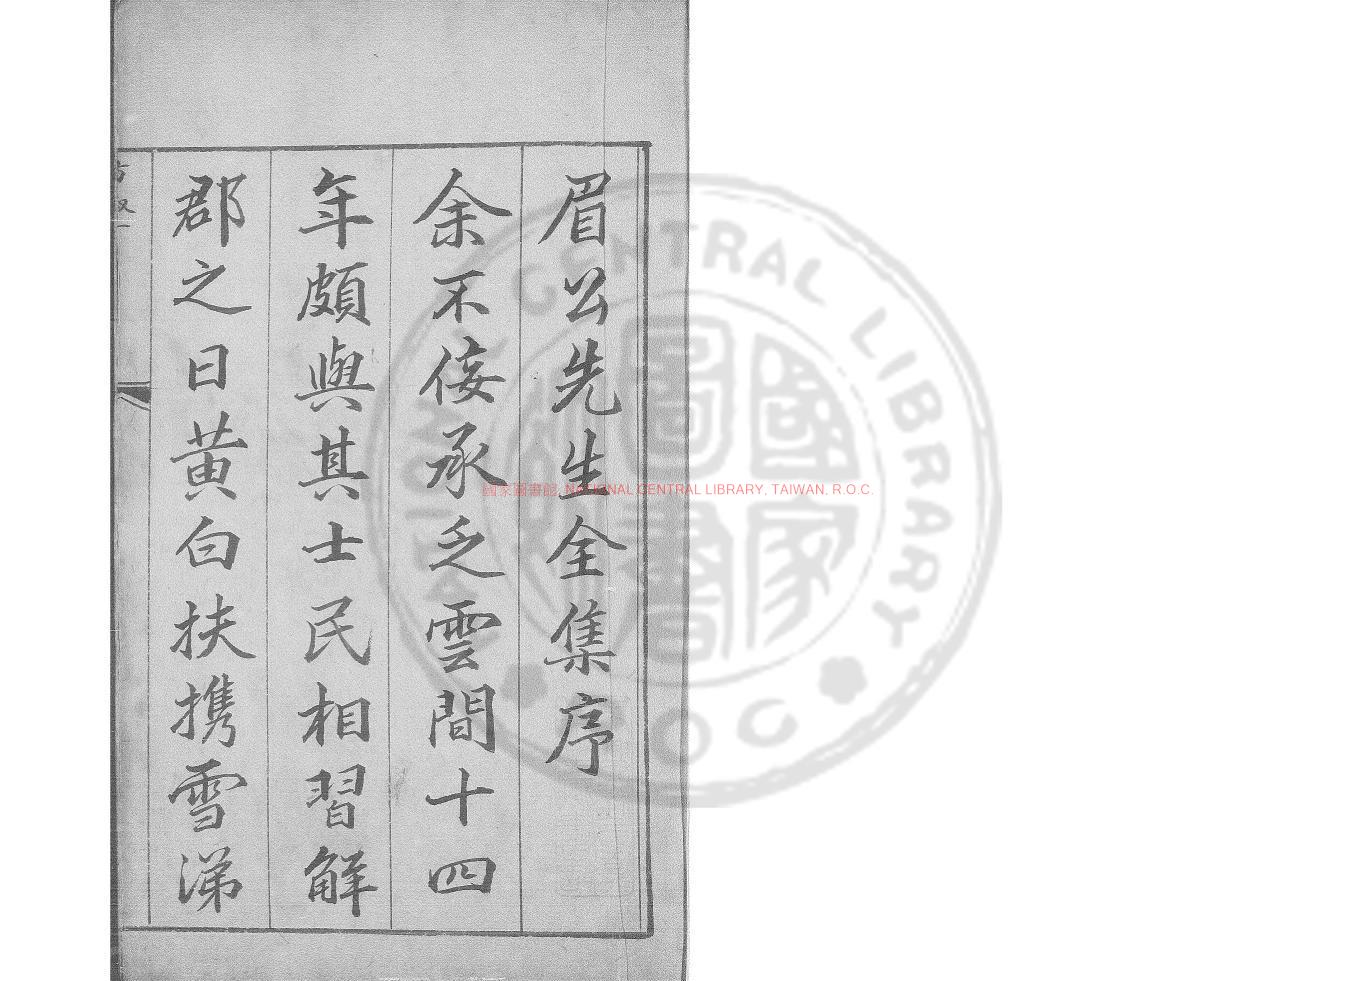 眉公先生全集序
余不佞承乏雲間十四
年頗與其士民相習解
郡之日黄白扶携雪涕
國家圖書館, NATIONAL CENTRAL LIBRARY, TAIWAN, R.O.C.
國家圖書館
NATIONAL CENTRAL LIBRARY
ROC